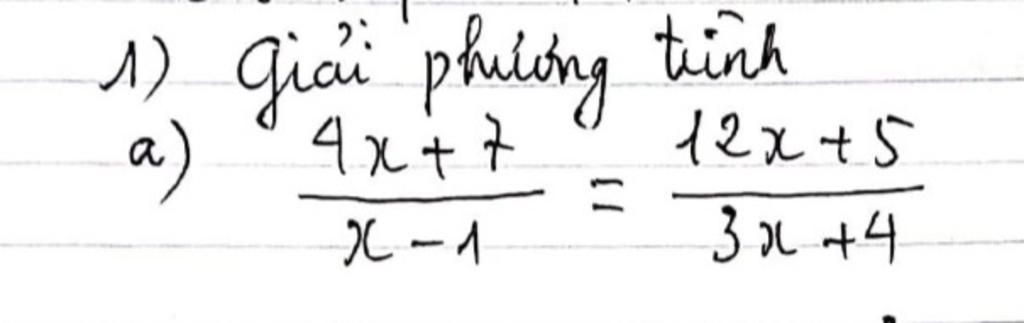 1) Giải phương trình
a) \frac{4x+7}{x-1} = \frac{12x+5}{3x+4}